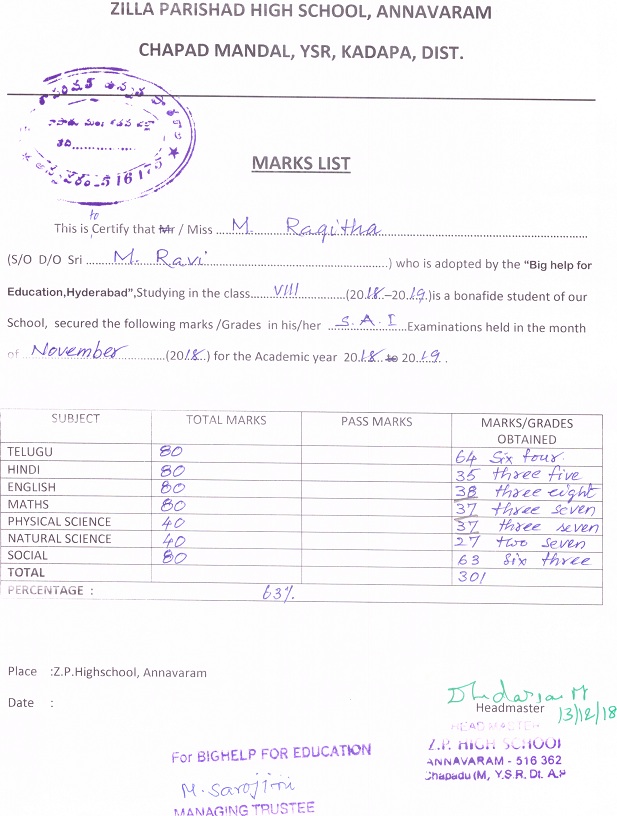 ZILLA PARISHAD HIGH SCHOOL, ANNAVARAM
CHAPAD MANDAL, YSR, KADAPA, DIST.
516175
MARKS LIST
to
This is Certify that Mr / Miss ... M. Ragitha
(S/O D/O Sri ... M. Ravi ...) who is adopted by the "Big help for
Education,Hyderabad",Studying in the class... VIII ...(2018–2019)is a bonafide student of our
School, secured the following marks /Grades in his/her ... S.A.I ...Examinations held in the month
of November ...(2018.) for the Academic year 2018 to 2019.
SUBJECT TOTAL MARKS PASS MARKS MARKS/GRADES OBTAINED
TELUGU 80 64 Six four.
HINDI 80 35 three five
ENGLISH 80 38 three eight
MATHS 80 37 three seven
PHYSICAL SCIENCE 40 37 three seven
NATURAL SCIENCE 40 27 two seven
SOCIAL 80 63 Six three
TOTAL 301
PERCENTAGE : 63%
Place :Z.P.Highschool, Annavaram
Date :
Headmaster 13/12/18
HEAD MASTER
Z.P. HIGH SCHOOL
ANNAVARAM - 516 362
Chapadu (M, Y.S.R. Dt. A.P
For BIGHELP FOR EDUCATION
M. Sarojini
MANAGING TRUSTEE